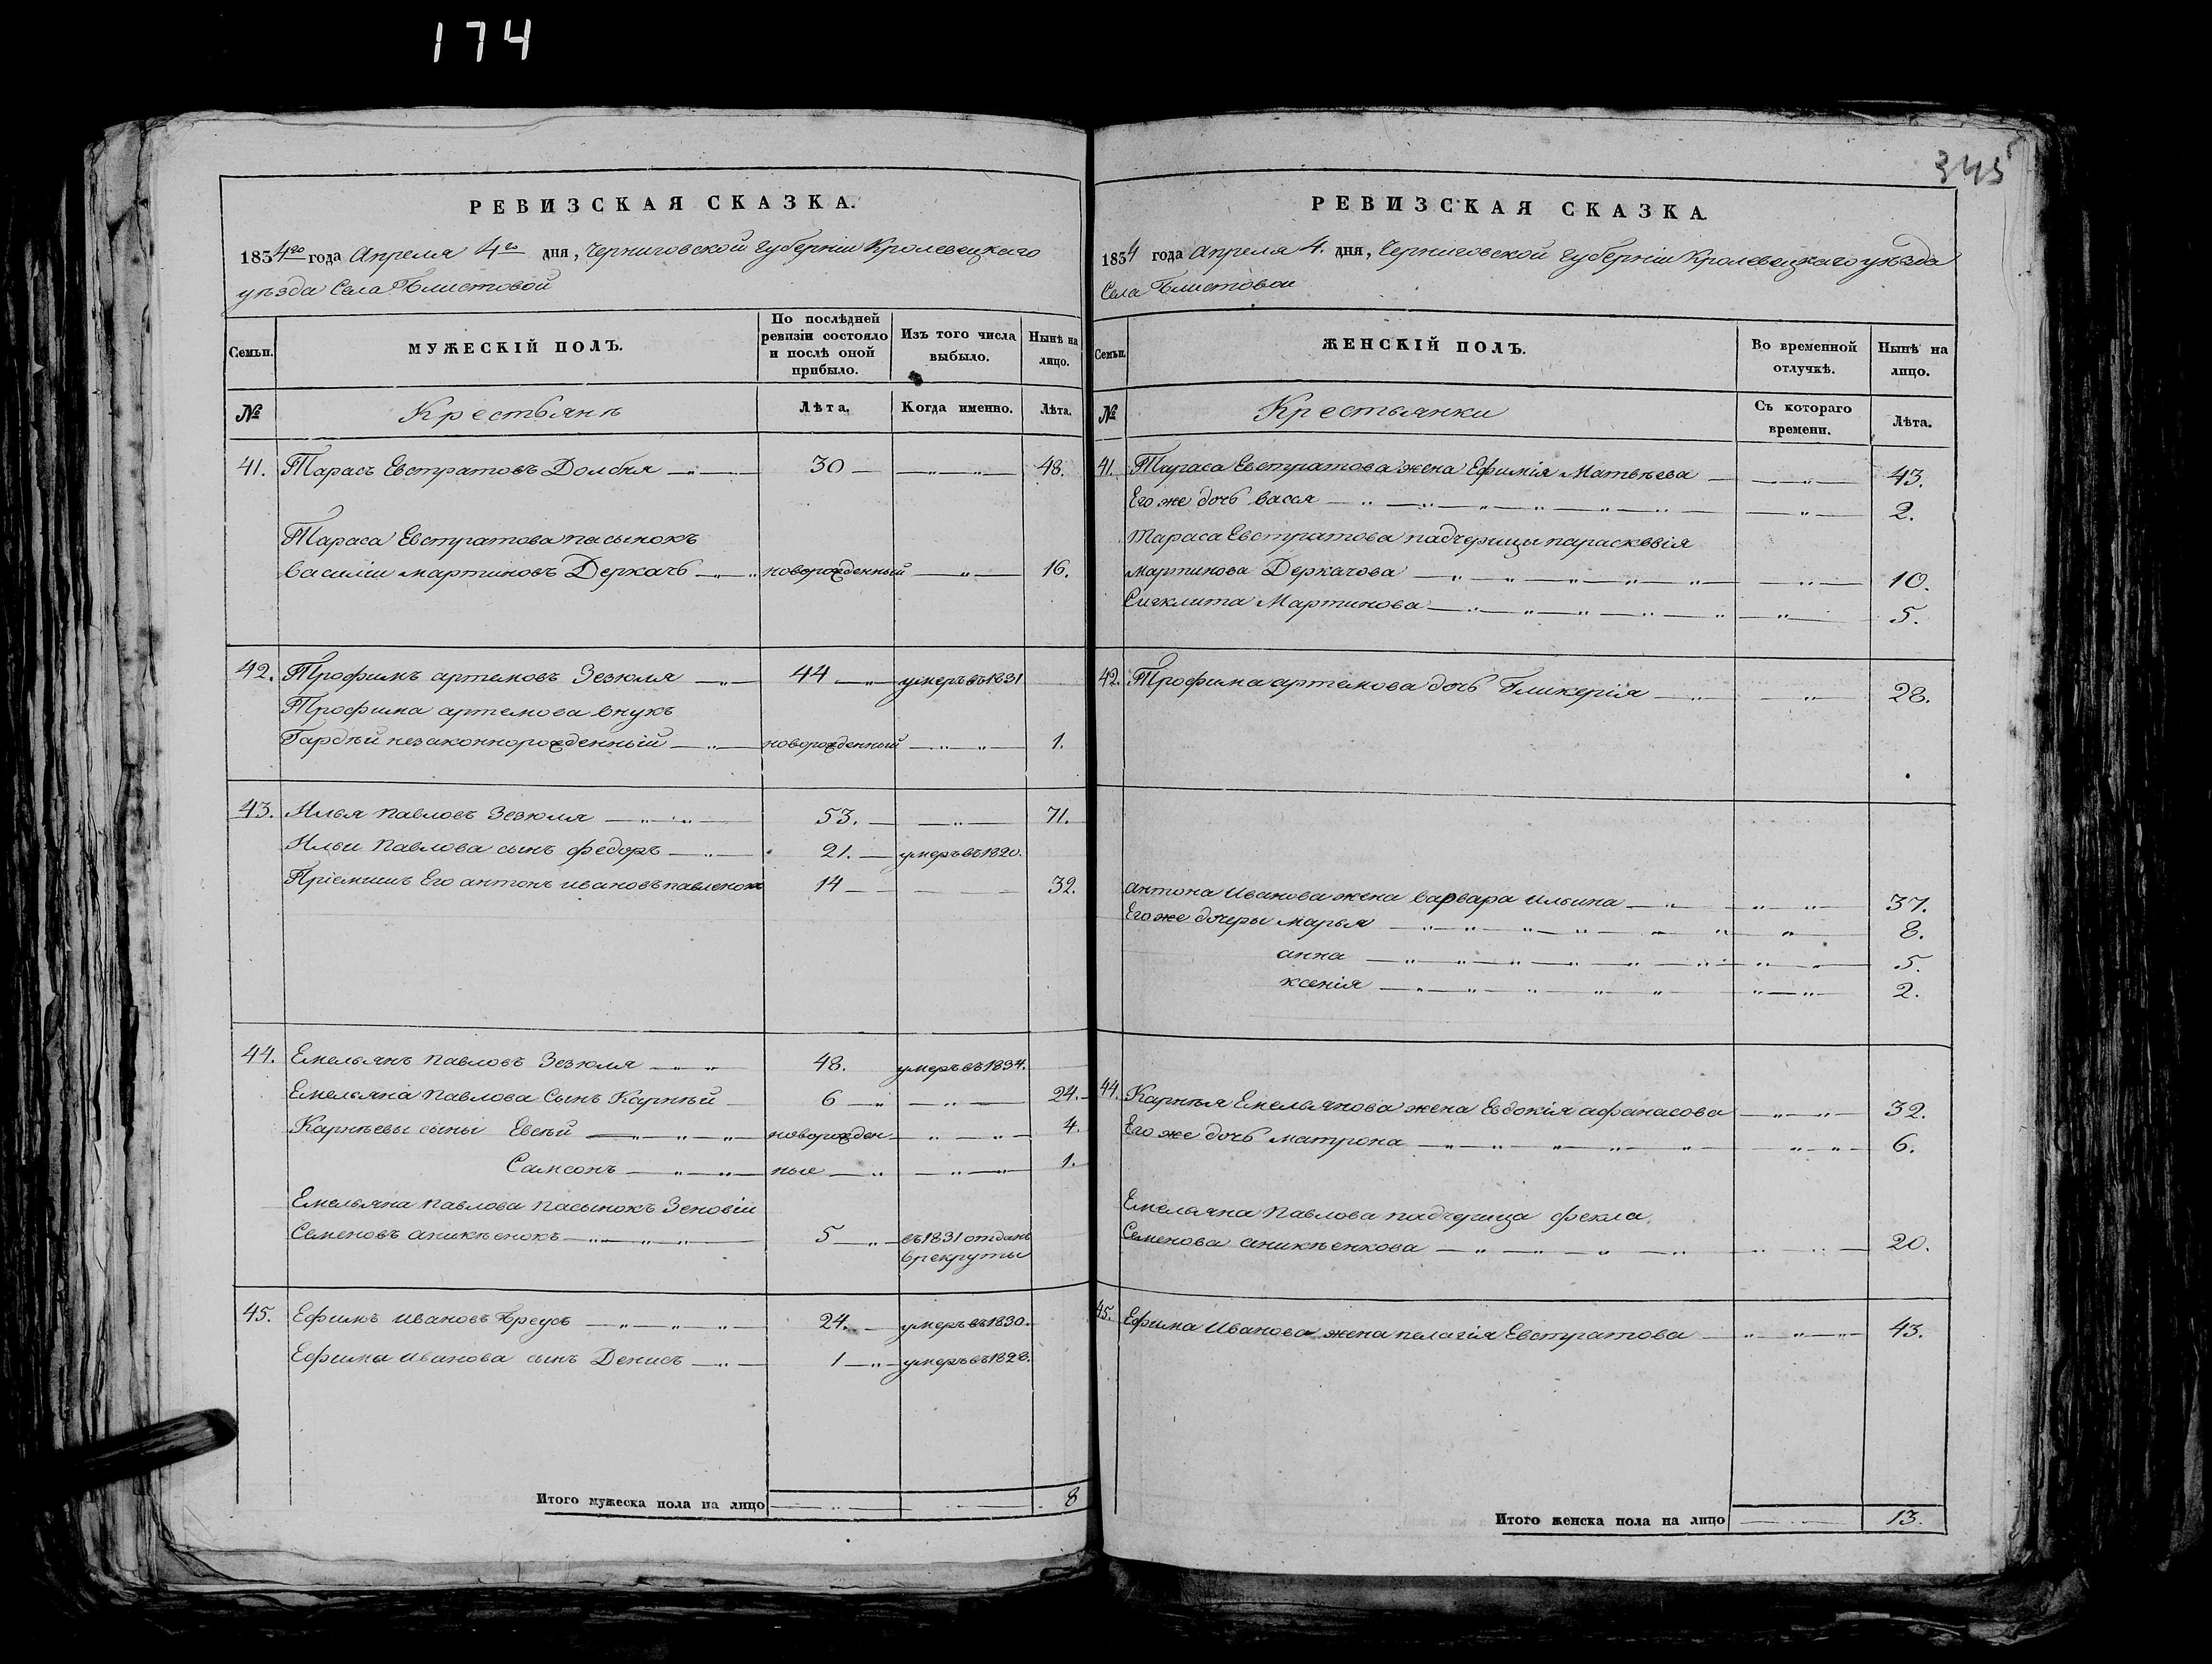 174
345
РЕВИЗСКАЯ СКАЗКА.
1834го года Апреля 4го дня, Черниговской губерніи Кролевецкаго
уѣзда Села Блистовой
Семьи. МУЖЕСКІЙ ПОЛЪ. По послѣдней ревизіи состояло и послѣ оной прибыло. Изъ того числа выбыло. Нынѣ на лицо.
№ Крестьянѣ Лѣта. Когда именно. Лѣта.
41. Тарасъ Евстратовъ Долбня 30 48.
Тараса Евстратова пасынокъ
василіи мартиновъ Деркачь новорожденный 16.
42. Трофимъ артемовъ Зезюля 44 умеръ въ 1831
Трофима артемова внукъ
Гардѣй незаконнорожденній новорожденный 1.
43. Илья павловъ Зезюля 53. 71.
Ильи Павлова сынъ федоръ 21. умеръ въ 1820.
Пріемишъ Его антонъ ивановъ павленокъ 14 32.
44. Емельянъ павловъ Зезюля 48. умеръ въ 1834.
Емельяна павлова Сынъ Карнѣй 6 24.
Карнѣевы сыны Евсѣй новорожден- 4.
Самсонъ ные 1.
Емельяна павлова пасынокъ Зеновіи
Семеновъ аникѣенокъ 5 въ 1831 отданъ
врекруты
45. Ефимъ ивановъ Бреусъ 24. умеръ въ 1830.
Ефима иванова сынъ Денисъ 1 умеръ въ 1828.
Итого мужеска пола на лицо 8
РЕВИЗСКАЯ СКАЗКА.
1834 года Апреля 4. дня, Черниговской губерніи Кролевецкаго уѣзда
Села Блистовои
Семьи. ЖЕНСКІЙ ПОЛЪ. Во временной отлучкѣ. Нынѣ на лицо.
№ Крестьянки Съ котораго времени. Лѣта.
41. Тараса Евстратова жена Ефимія Матвѣева 43.
Его же дочь васся 2.
Тараса Евстратова падчерицы параскевія
мартинова Деркачова 10.
Сиклита Мартинова 5.
42. Трофима артемова дочь Гликерія 28.
антона Иванова жена варвара ильина 37.
Его же дочеры марья 8.
анна 5.
ксенія 2.
44. Карнѣя Емельянова жена Евдокія афанасова 32.
Его же дочь матрона 6.
Емельяна Павлова падчерица фекла
Семенова аникѣенкова 20.
45. Ефима Иванова жена пелагія Евстратова 43.
Итого женска пола на лицо 13.